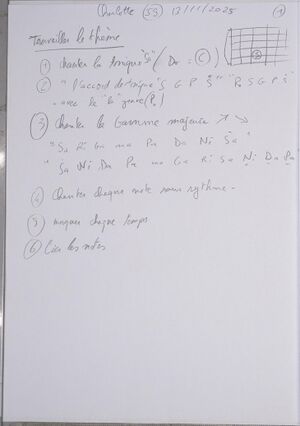 Charlotte (53) 13/11/2025 (1)
Travailler le thème
(1) chanter la tonique "S" (Do = C)
(2) "l'accord de tonique "S G P Ṡ" "R S G P Ṡ"
- avec le "
(3) chanter la Gamme majeure ↗ ↘
"Sa Ri Ga ma Pa Da Ni Ṡa"
"Ṡa Ni Da Pa ma Ga Ri Sa Ṇi Ḍa P̣a
(4) Chanter chaque note sans rythme -
(5) marquer chaque temps
(6) Lier les notes